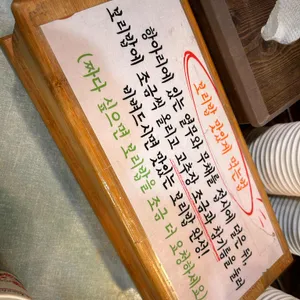 보리밥 맛있게 먹는법
항아리에 있는 열무와 무채를 접시에 담은 뒤,
보리밥에 조금씩 올리고 고추장 조금과 참기름을 둘러
비벼드시면 맛있는 보리밥 완성!
(짜다 싶으면 보리밥을 조금 더 요청하세요